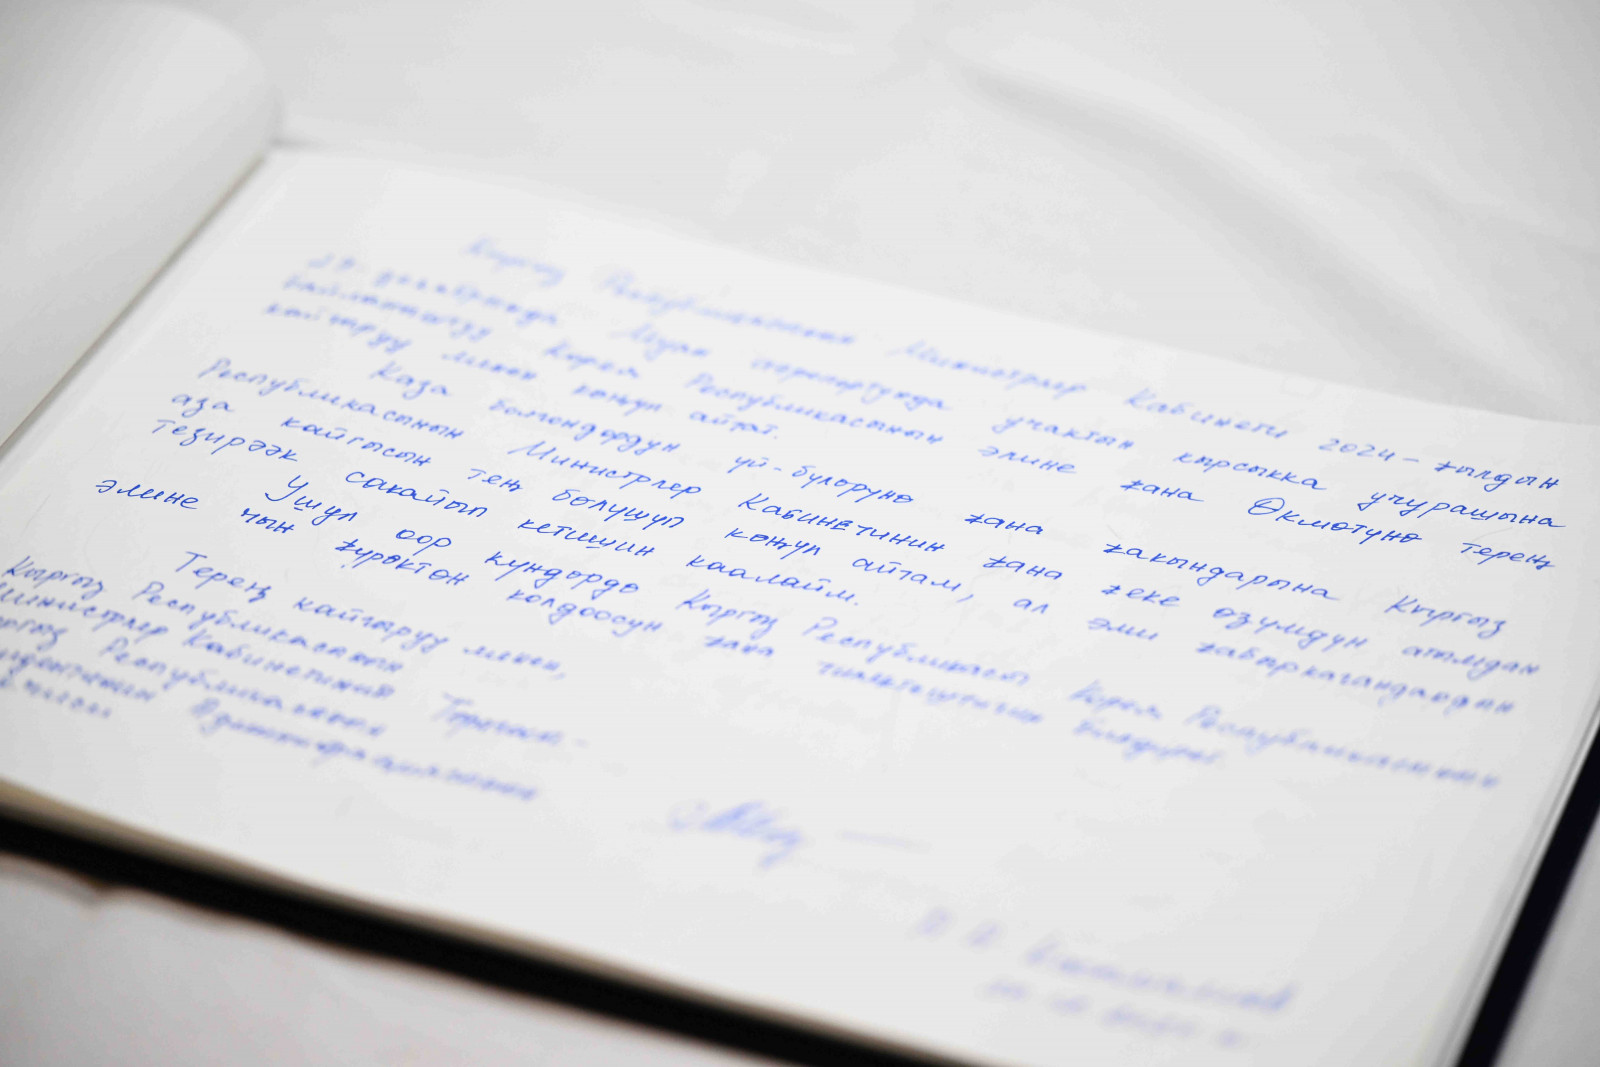 Кыргыз Республикасынын Министрлер Кабинети 2024-жылдын
29-декабрында Муан аэропортунда учактын кырсыкка учурашына
байланыштуу Корея Республикасынын элине жана Өкмөтүнө терең
кайгыруу менен көңүл айтат.
Каза болгондордун үй-бүлөрүнө жана жакындарына Кыргыз
Республикасынын Министрлер Кабинетинин жана жеке өзүмдүн атымдан
аза кайгысын тең бөлүшүп көңүл айтам, ал эми жабыркагандардан
тезирээк сакайып кетишин каалайм.
Ушул оор күндөрдө Кыргыз Республикасы Корея Республикасынын
элине чын жүрөктөн колдоосун жана тилектештигин билдирет.
Терең кайгыруу менен,
Кыргыз Республикасынын
Министрлер Кабинетинин Төрагасы -
Кыргыз Республикасынын
Администрациясынын